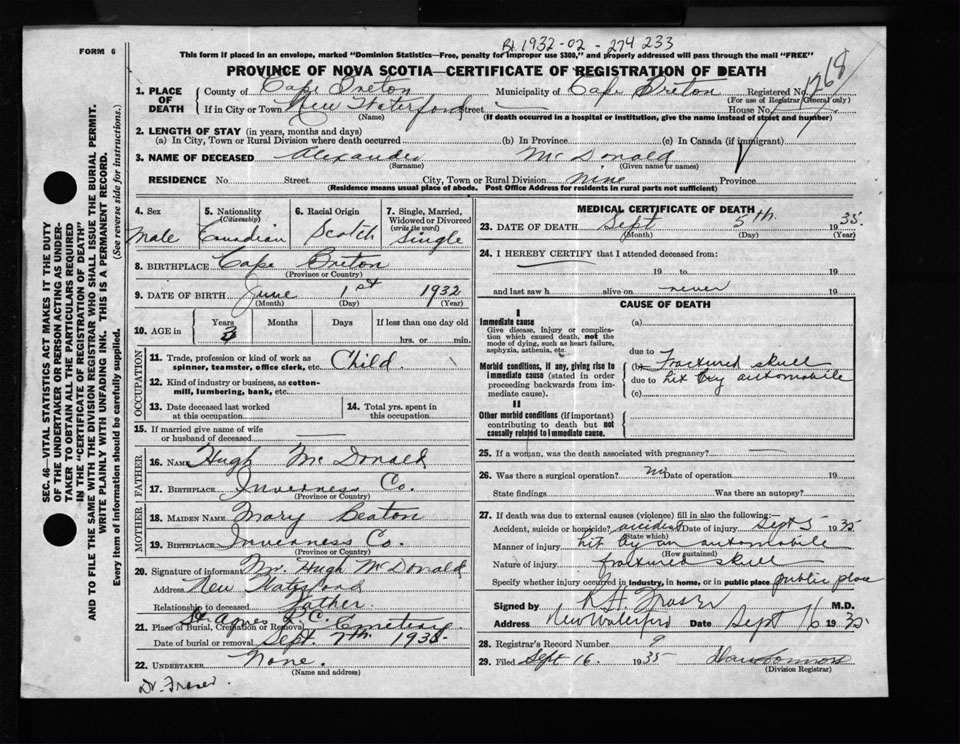 Bt 1932-02-274 233
FORM 6
This form if placed in an envelope, marked "Dominion Statistics—Free, penalty for improper use $300," and properly addressed will pass through the mail "FREE"
PROVINCE OF NOVA SCOTIA—CERTIFICATE OF REGISTRATION OF DEATH
1268
1. PLACE OF DEATH
County of Cape Breton Municipality of Cape Breton Registered No.
(For use of Registrar General only)
If in City or Town New Waterford Street — House No.
(Name) (If death occurred in a hospital or institution, give the name instead of street and number)
2. LENGTH OF STAY (in years, months and days)
(a) In City, Town or Rural Division where death occurred (b) In Province (c) In Canada (if immigrant)
3. NAME OF DECEASED Alexander McDonald
(Surname) (Given name or names)
RESIDENCE No. Street City, Town or Rural Division nine Province
(Residence means usual place of abode. Post Office Address for residents in rural parts not sufficient)
4. Sex Male
5. Nationality (Citizenship) Canadian
6. Racial Origin Scotch
7. Single, Married, Widowed or Divorced (write the word) Single
8. BIRTHPLACE Cape Breton
(Province or Country)
9. DATE OF BIRTH June 1st 1932
(Month) (Day) (Year)
10. AGE in Years 3 Months Days If less than one day old
hrs. or min.
OCCUPATION
11. Trade, profession or kind of work as spinner, teamster, office clerk, etc. Child.
12. Kind of industry or business, as cotton-mill, lumbering, bank, etc.
13. Date deceased last worked at this occupation
14. Total yrs. spent in this occupation
15. If married give name of wife or husband of deceased —
FATHER
16. NAME Hugh McDonald
17. BIRTHPLACE Inverness Co.
(Province or Country)
MOTHER
18. MAIDEN NAME Mary Beaton
19. BIRTHPLACE Inverness Co.
(Province or Country)
20. Signature of informant Mr. Hugh McDonald
Address New Waterford
Relationship to deceased Father.
21. Place of Burial, Cremation or Removal St. Agnes R.C. Cemetery
Date of burial or removal Sept. 7th 1935
22. UNDERTAKER None.
(Name and address)
Dr. Fraser.
MEDICAL CERTIFICATE OF DEATH
23. DATE OF DEATH Sept 5th 1935
(Month) (Day) (Year)
24. I HEREBY CERTIFY that I attended deceased from:
19 to 19
and last saw h alive on never 19
CAUSE OF DEATH
I
Immediate cause
Give disease, injury or complication which caused death, not the mode of dying, such as heart failure, asphyxia, asthenia, etc.
(a)
due to
Morbid conditions, if any, giving rise to immediate cause (stated in order proceeding backwards from immediate cause).
(b) Fractured skull
due to hit by automobile
(c)
II
Other morbid conditions (if important) contributing to death but not causally related to immediate cause.
25. If a woman, was the death associated with pregnancy? —
26. Was there a surgical operation? no Date of operation 19
State findings Was there an autopsy?
27. If death was due to external causes (violence) fill in also the following:
Accident, suicide or homicide? accident Date of injury Sept 5 1935
(State which)
Manner of injury hit by an automobile
(How sustained)
Nature of injury fractured skull
Specify whether injury occurred in industry, in home, or in public place public place
Signed by R.H. Fraser M.D.
Address New Waterford Date Sept 6 1935
28. Registrar's Record Number 9
29. Filed Sept 16. 1935
(Division Registrar)
SEC. 46—VITAL STATISTICS ACT MAKES IT THE DUTY
OF THE UNDERTAKER OR PERSON ACTING AS UNDER-
TAKER TO OBTAIN ALL THE PARTICULARS REQUIRED
IN THE "CERTIFICATE OF REGISTRATION OF DEATH"
AND TO FILE THE SAME WITH THE DIVISION REGISTRAR WHO SHALL ISSUE THE BURIAL PERMIT.
WRITE PLAINLY WITH UNFADING INK. THIS IS A PERMANENT RECORD.
Every item of information should be carefully supplied. (See reverse side for instructions.)